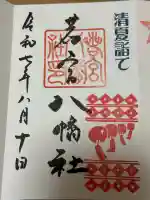 清百夏詣て
若宮八幡社
令和七年八月十日